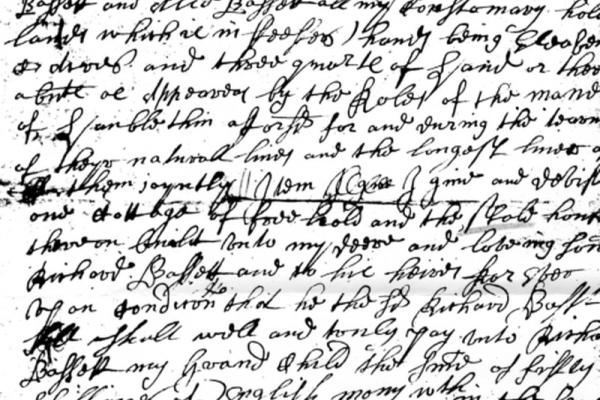 Bassett and Alce Bassett all my Costomary hold
lands which is in feofees hands being
acres and three quarts of land or there
about as Appeares by the Roles of the mano
of Llanblethin aforsd for and during the tearm
of there naturall lives and the longest liver
them joyntly // Item I give and devise
one Cottage of free hold and the whole hous
thereon built unto my deere and loveing son
Richard Bassett and to his heires for ever
upon Condicon that he the sd Richard Bassett
shall well and truly pay unto Richa
Bassett my Grand Child the sume of fifty
of English mony wth in the